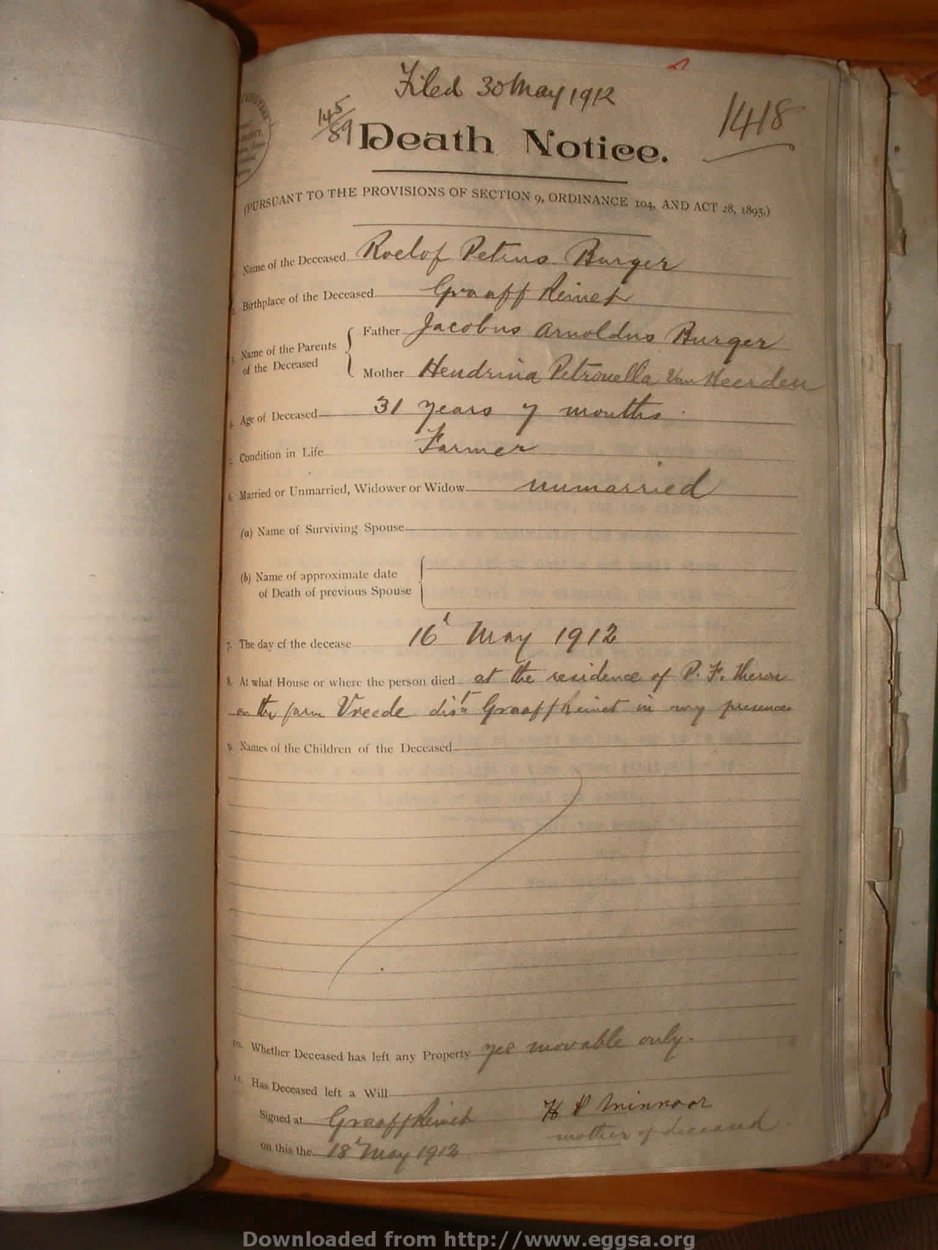 Filed 30 May 1912
145/89
1418
Death Notice.
(PURSUANT TO THE PROVISIONS OF SECTION 9, ORDINANCE 104, AND ACT 28, 1895.)
Name of the Deceased Roelof Petrus Burger
2. Birthplace of the Deceased Graaff Reinet
3. Name of the Parents of the Deceased { Father Jacobus Arnoldus Burger
Mother Hendrina Petronella Van Heerden
4. Age of Deceased 31 years 7 months
5. Condition in Life Farmer
6. Married or Unmarried, Widower or Widow unmarried
(a) Name of Surviving Spouse
(b) Name of approximate date
of Death of previous Spouse
7. The day of the decease 16t May 1912
8. At what House or where the person died at the residence of P. F. Theron
on the farm Vreede distr. Graaff Reinet in my presence
9. Names of the Children of the Deceased
10. Whether Deceased has left any Property yes movable only.
11. Has Deceased left a Will
Signed at Graaff Reinet H P Minnaar
mother of deceased
on this the 18t May 1912
Downloaded from http://www.eggsa.org